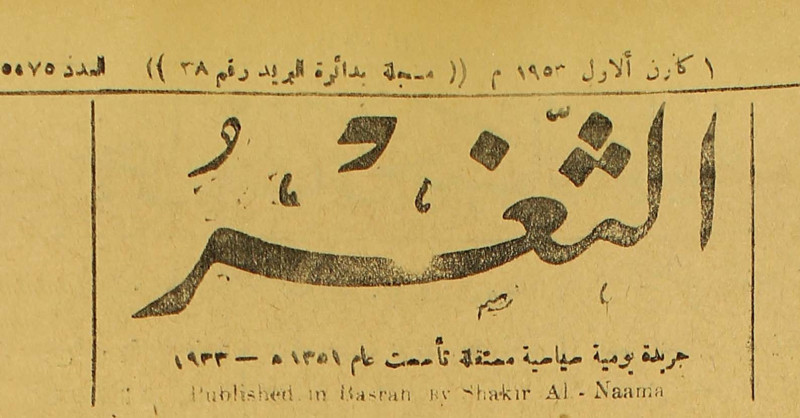 ١ كانون ألاول ١٩٥٣ م (( مسجلة بدائرة البريد رقم ٣٨ )) العدد ٥٥٧٥
الثغر
جريدة يومية سياسية مستقلة تأسست عام ١٣٥١ ه — ١٩٣٣
Published in Basrah By Shakir Al - Naama